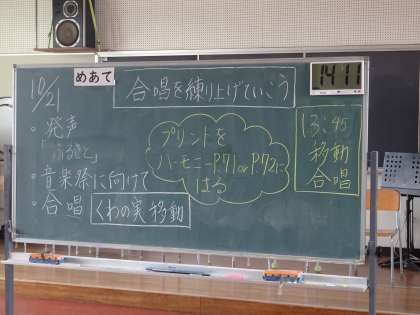 10/21
めあて
合唱を練り上げていこう
14:11
・発声
「ふるさと」
・音楽祭に向けて
・合唱 くわの実 移動
プリントを
ハーモニーP.71 or P.72に
はる
13:45
移動
合唱